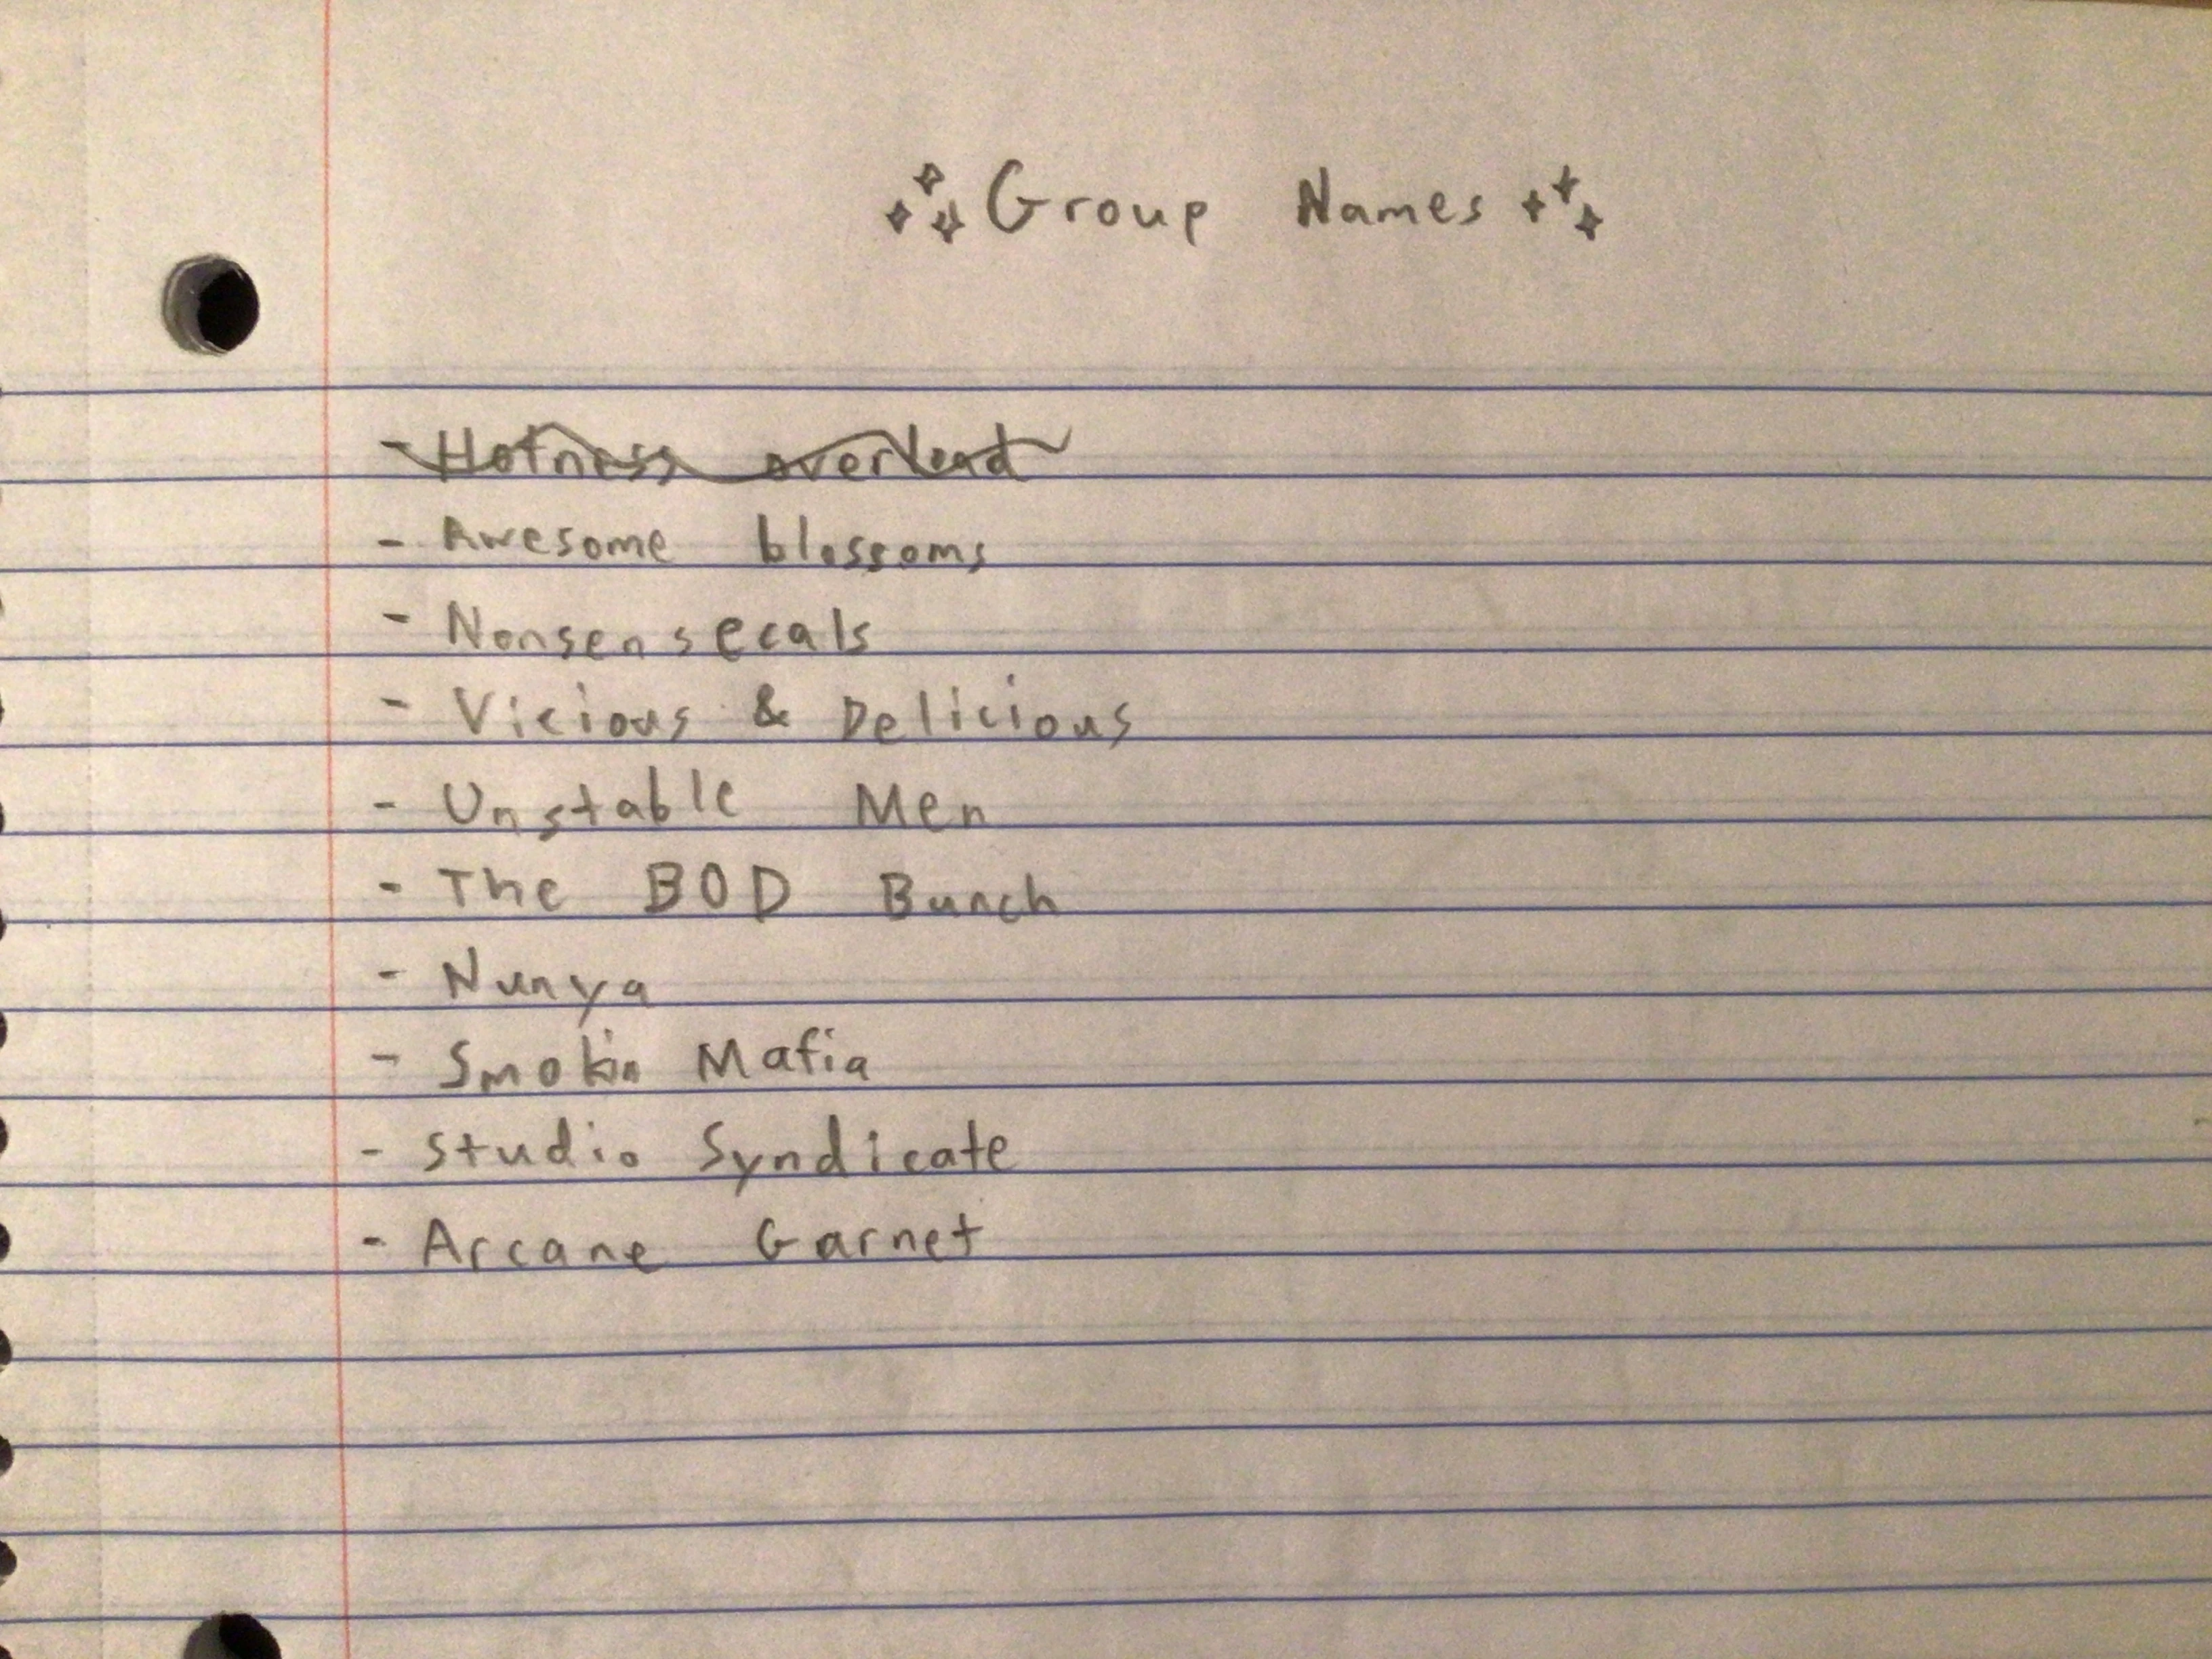 Group Names
- Hotness overload
- Awesome blossoms
- Nonsensecals
- Vicious & Delicious
- Unstable Men
- The BOD Bunch
- Nunya
- Smokin Mafia
- Studio Syndicate
- Arcane Garnet